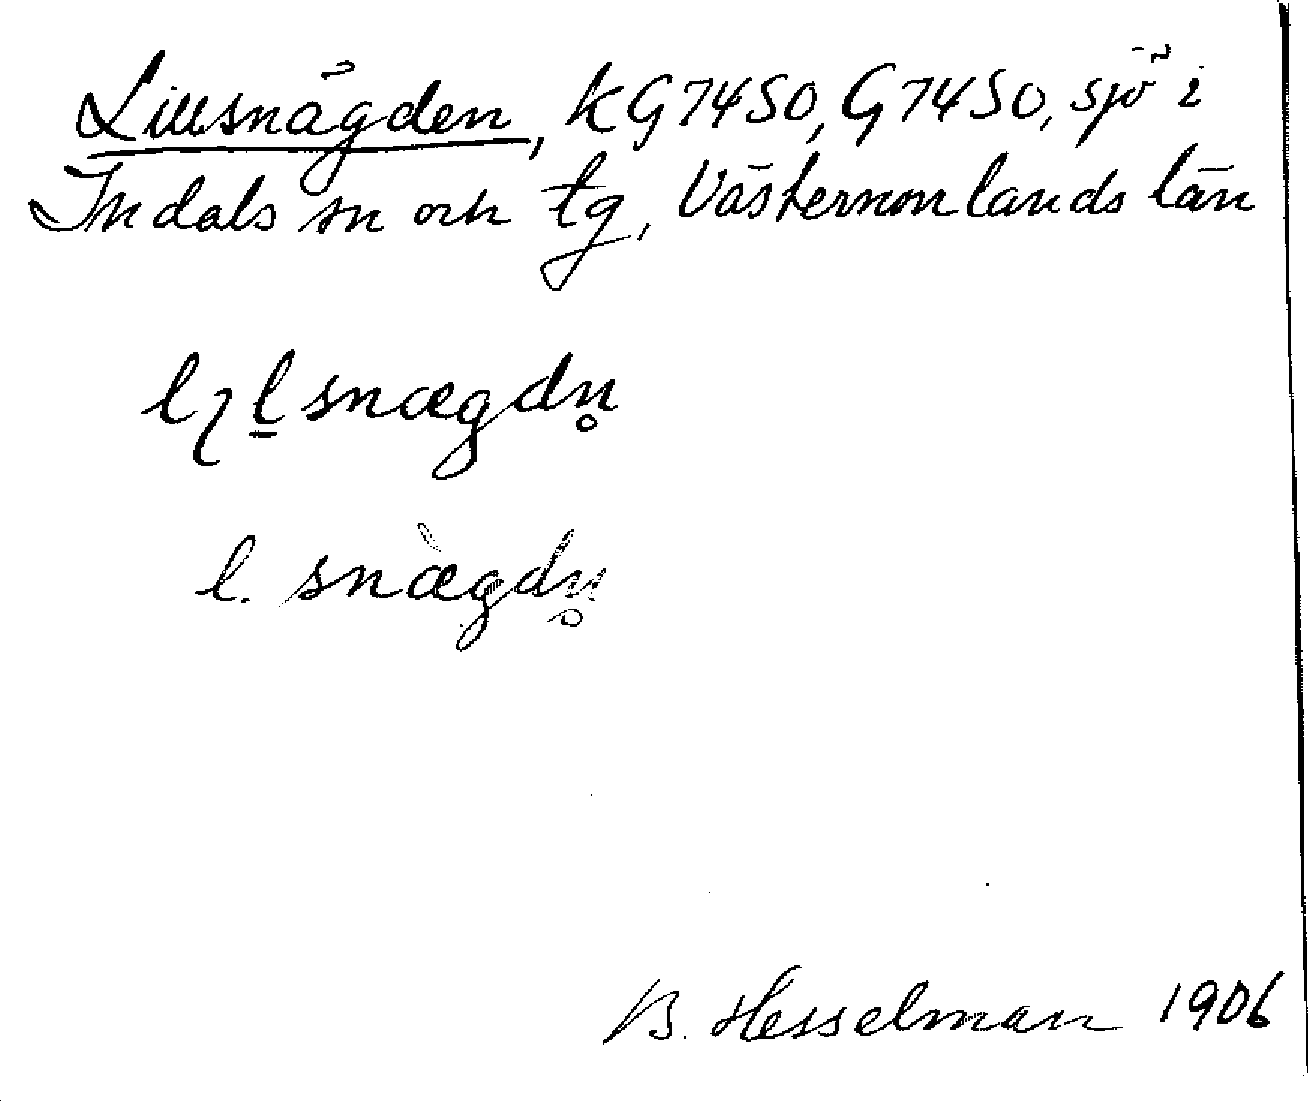 Lillsnägden, KG7450, G7450, sjö i
Indals sn och tg, Västernorrlands län
lɿl̠snægdn̥
l. snæ̀gdn̥
B. Hesselman 1906